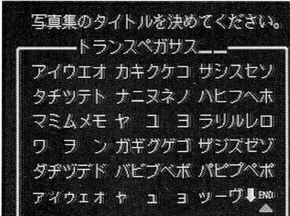 写真集のタイトルを決めてください。
トランスペガサス__
アイウエオ カキクケコ サシスセソ
タチツテト ナニヌネノ ハヒフヘホ
マミムメモ ヤ ユ ヨ ラリルレロ
ワ ヲ ン ガギグゲゴ ザジズゼゾ
ダヂヅデド バビブベボ パピプペポ
ァィゥェォ ャ ュ ョ ッーヴ⬇END